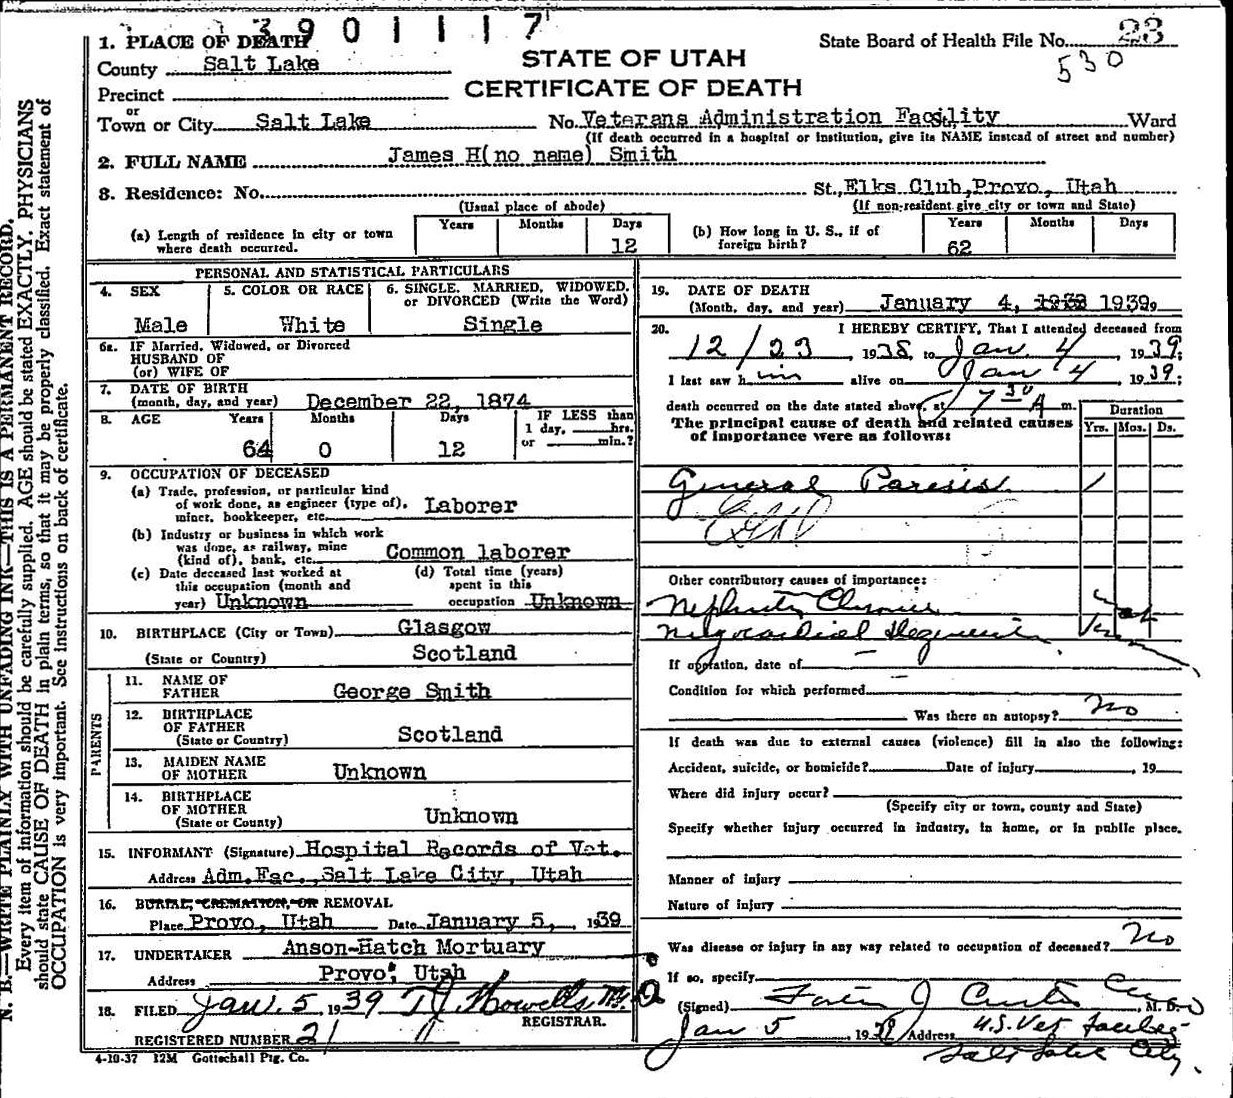 3901117
1. PLACE OF DEATH
County Salt Lake
Precinct
or
Town or City Salt Lake
State Board of Health File No. 23
530
STATE OF UTAH
CERTIFICATE OF DEATH
No. Veterans Administration Facility Ward
(If death occurred in a hospital or institution, give its NAME instead of street and number)
2. FULL NAME James H(no name) Smith
3. Residence: No. St., Elks Club, Provo, Utah
(Usual place of abode) (If non-resident give city or town and State)
(a) Length of residence in city or town where death occurred. Years Months Days 12
(b) How long in U. S., if of foreign birth? Years 62 Months Days
PERSONAL AND STATISTICAL PARTICULARS
4. SEX Male
5. COLOR OR RACE White
6. SINGLE, MARRIED, WIDOWED, or DIVORCED (Write the Word) Single
6a. IF Married, Widowed, or Divorced
HUSBAND OF
(or) WIFE OF
7. DATE OF BIRTH
(month, day, and year) December 22, 1874
8. AGE Years 64 Months 0 Days 12 IF LESS than 1 day, hrs. or min.?
9. OCCUPATION OF DECEASED
(a) Trade, profession, or particular kind
of work done, as engineer (type of), Laborer
miner, bookkeeper, etc.
(b) Industry or business in which work
was done, as railway, mine
(kind of), bank, etc. Common laborer
(c) Date deceased last worked at
this occupation (month and
year) Unknown
(d) Total time (years)
spent in this
occupation Unknown
10. BIRTHPLACE (City or Town) Glasgow
(State or Country) Scotland
PARENTS
11. NAME OF
FATHER George Smith
12. BIRTHPLACE
OF FATHER
(State or Country) Scotland
13. MAIDEN NAME
OF MOTHER Unknown
14. BIRTHPLACE
OF MOTHER
(State or County) Unknown
15. INFORMANT (Signature) Hospital Records of Vet.
Address Adm. Fac., Salt Lake City, Utah
16. BURIAL, CREMATION, OR REMOVAL
Place Provo, Utah Date January 5, 1939
17. UNDERTAKER Anson-Hatch Mortuary
Address Provo, Utah
18. FILED Jan. 5 1939 T J Howells M.D.
REGISTRAR.
REGISTERED NUMBER 21
4-10-37 12M Gottschall Ptg. Co.
19. DATE OF DEATH
(Month, day, and year) January 4, 1938 1939
20. I HEREBY CERTIFY, That I attended deceased from
12/23, 1938, to Jan. 4, 1939;
I last saw him alive on Jan 4, 1939;
death occurred on the date stated above, at 7 30 A m.
The principal cause of death and related causes
of importance were as follows:
Duration
Yrs. Mos. Ds.
General Paresis 1
Other contributory causes of importance:
Nephritis Chronic
Myocardial Degeneration
If operation, date of
Condition for which performed
Was there an autopsy? No
If death was due to external causes (violence) fill in also the following:
Accident, suicide, or homicide? Date of injury , 19
Where did injury occur?
(Specify city or town, county and State)
Specify whether injury occurred in industry, in home, or in public place.
Manner of injury
Nature of injury
Was disease or injury in any way related to occupation of deceased? No
If so, specify
(Signed) J Curtis, M. D.
Jan 5, 1939 Address U.S. Vet Facility
Salt Lake City.
N. B.—WRITE PLAINLY WITH UNFADING INK—THIS IS A PERMANENT RECORD.
Every item of information should be carefully supplied. AGE should be stated EXACTLY. PHYSICIANS
should state CAUSE OF DEATH in plain terms, so that it may be properly classified. Exact statement of
OCCUPATION is very important. See instructions on back of certificate.